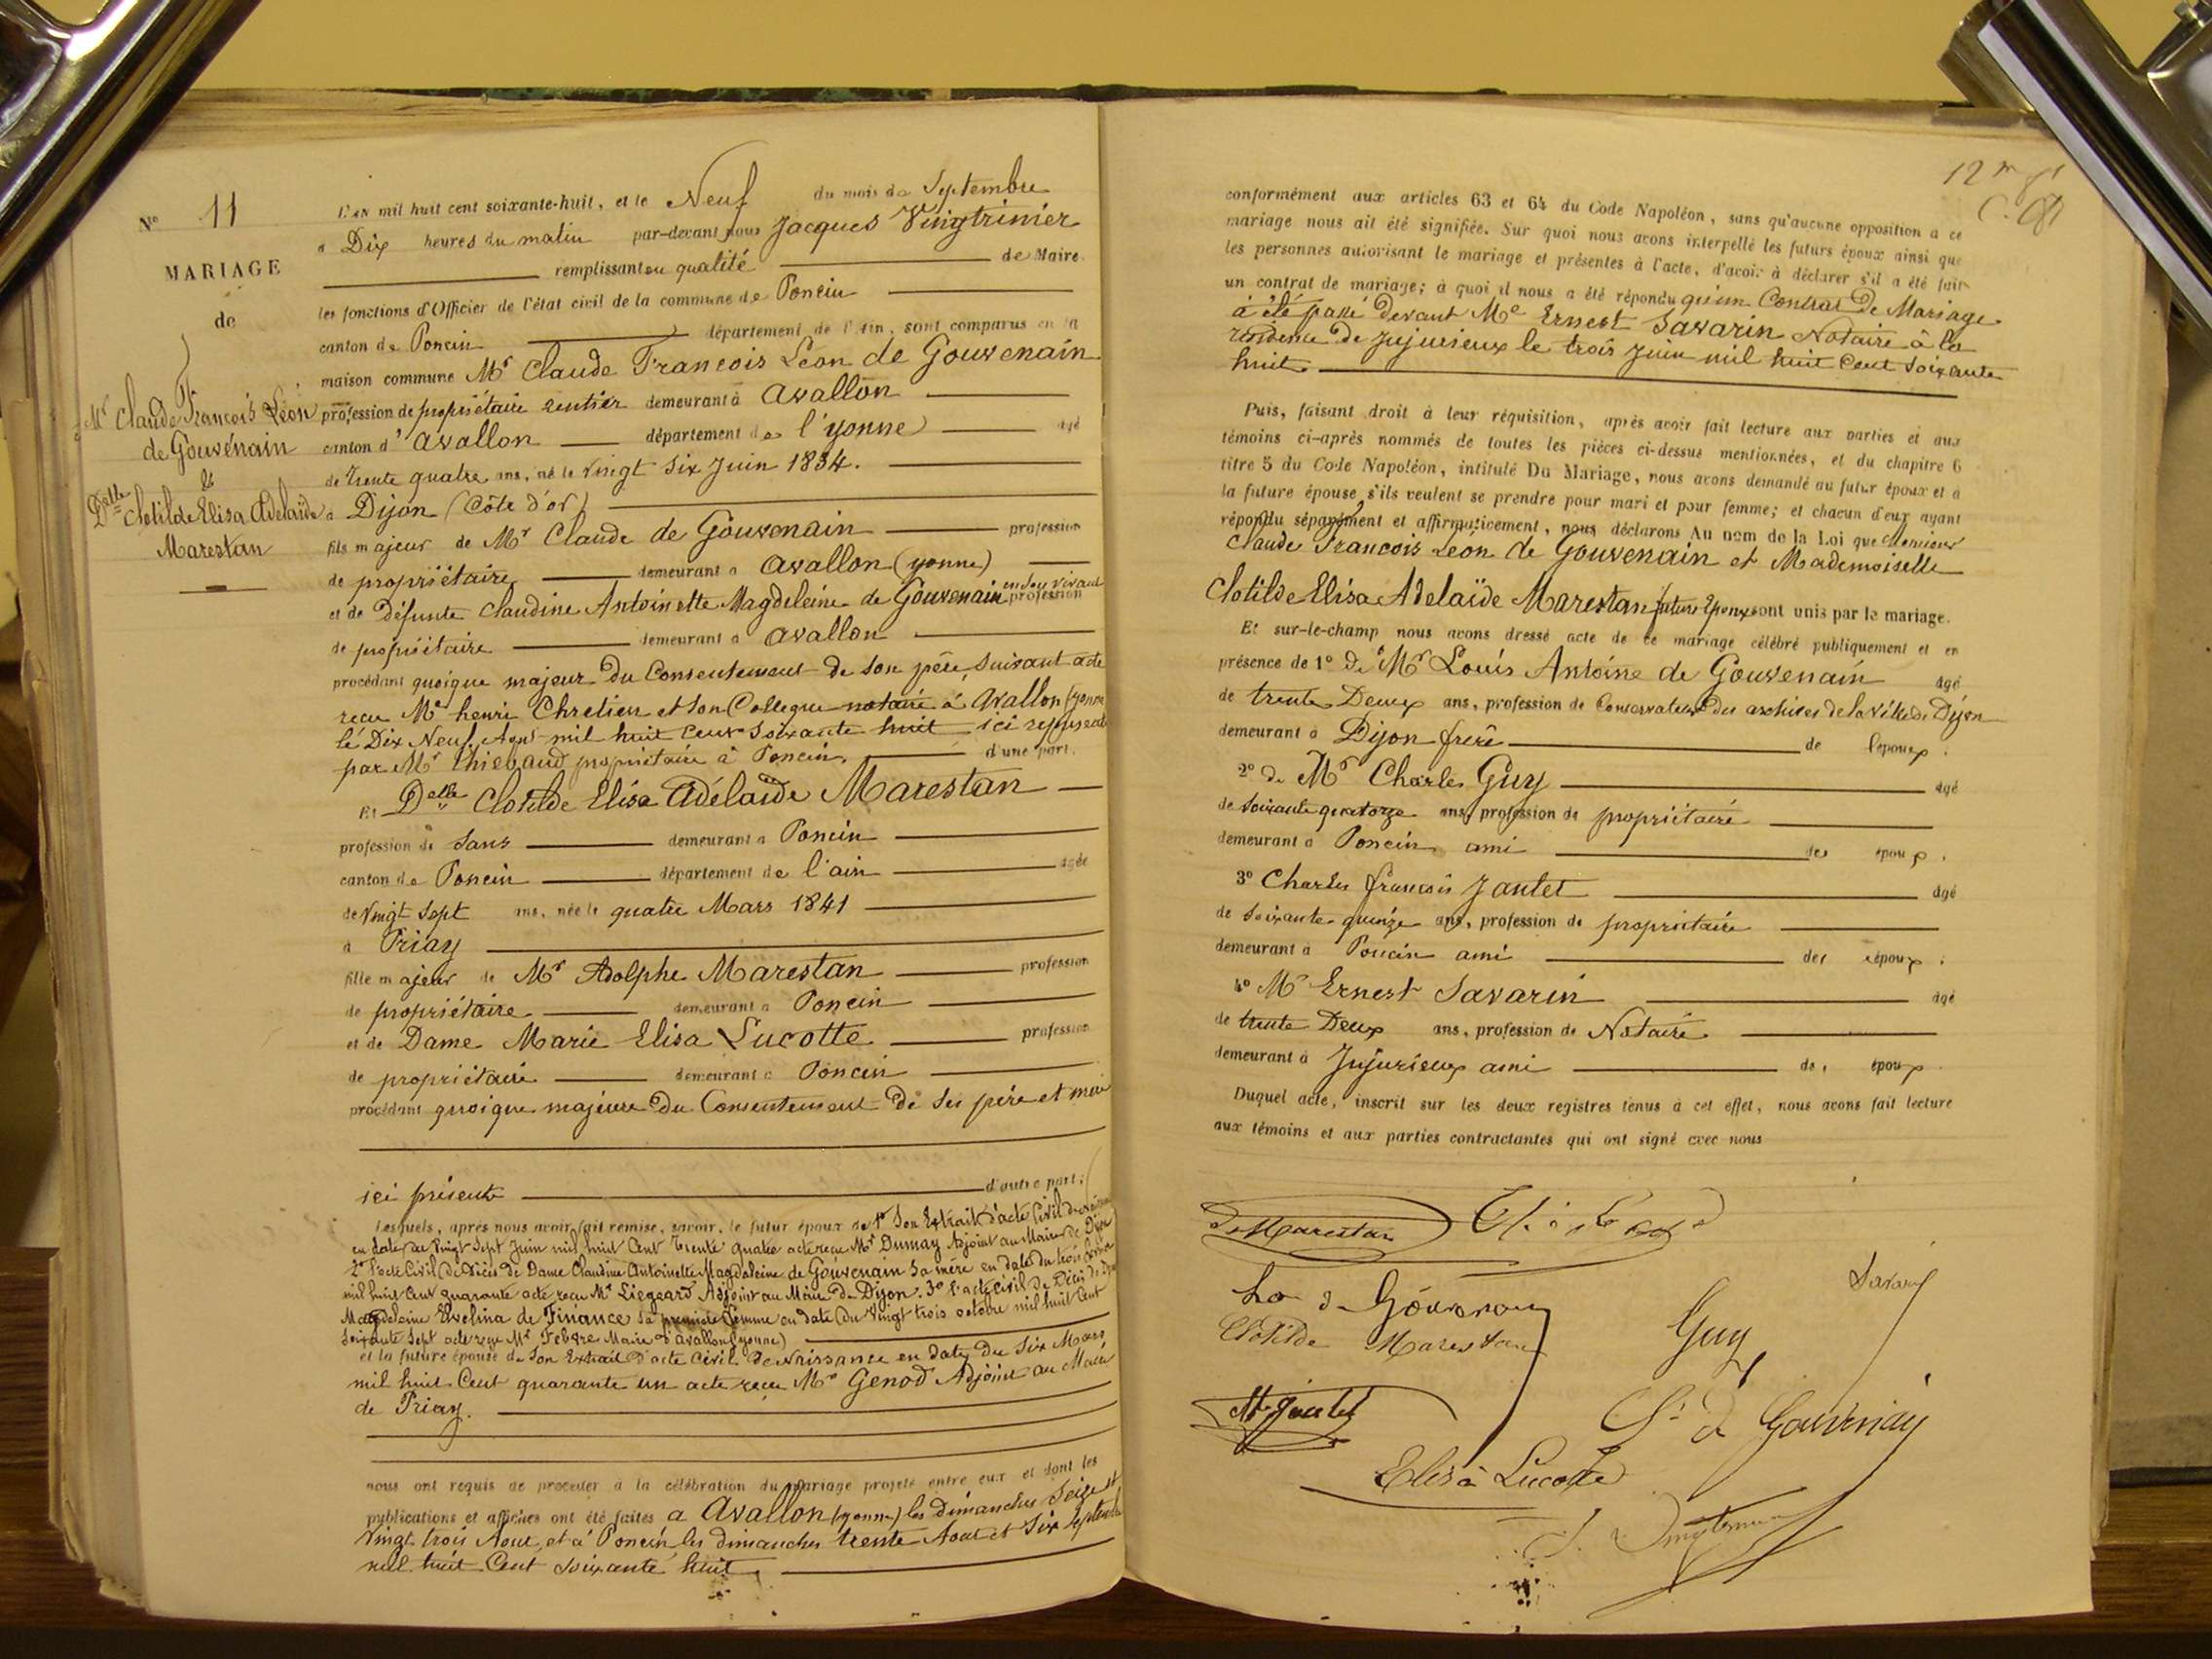 N° 11
MARIAGE
de
Mr Claude François Léon
de Gouvenain
&
Delle Clotilde Elisa Adelaïde
Marestan
L'AN mil huit cent soixante-huit, et le Neuf du mois de Septembre
à Dix heures du matin par-devant nous Jacques Vingtrinier
remplissant en qualité de Maire
les fonctions d'Officier de l'état civil de la commune de Poncin
canton de Poncin département de l'Ain, sont comparus en la
maison commune Mr Claude François Léon de Gouvenain
profession de propriétaire rentier demeurant à Avallon
canton d'Avallon département de l'yonne âgé
de trente quatre ans, né le vingt six Juin 1834.
à Dijon (Côte d'or)
fils majeur de Mr Claude de Gouvenain profession
de propriétaire demeurant à Avallon (yonne)
et de défunte Claudine Antoinette Magdeleine de Gouvenain en son vivant profession
de propriétaire demeurant à Avallon
procédant quoique majeur du Consentement de son père, suivant acte
reçu Me henri Chretien et son Collegue notaire à Avallon (yonne
le Dix Neuf Aout mil huit cent soixante huit ici représenté
par Mr Thiebaud propriétaire à Poncin, d'une part.
Et Delle Clotilde Elisa Adélaïde Marestan
profession de Sans demeurant à Poncin
canton de Poncin département de l'ain âgée
de Vingt Sept ans, née le quatre Mars 1841
à Priay
fille majeur de Mr Adolphe Marestan profession
de propriétaire demeurant à Poncin
et de Dame Marie Elisa Lucotte profession
de propriétaire demeurant à Poncin
procédant quoique majeure du Consentement de ses père et mère
ici présents d'autre part;
Lesquels, après nous avoir fait remise, savoir, le futur époux de 1° Son Extrait d'acte Civil de
en date du Vingt Sept Juin mil huit Cent Trente quatre acte reçu Mr Dumay Adjoint au Maire de Dijon
2° l'acte Civil de décès de Dame Claudine Antoinette Magdeleine de Gouvenain sa mère en date du trois
mil huit Cent quarante acte reçu Mr Liegeard Adjoint au Maire de Dijon. 3° l'acte civil de Décès de
Magdeleine Evelina de Finance sa première femme en date du Vingt trois octobre mil huit Cent
soixante sept acte reçu Mr Febvre Maire d'avallon (yonne)
et la future épouse de Son Extrait d'acte Civil de Naissance en date du Six Mars
mil huit Cent quarante un acte reçu Mr Genod Adjoint au Maire
de Priay.
nous ont requis de procéder à la célébration du mariage projeté entre eux et dont les
publications et affiches ont été faites à Avallon (yonne) les dimanches Seize et
Vingt trois Aout, et à Poncin les dimanches trente Aout et Six Septembre
mil huit Cent soixante huit
12
conformément aux articles 63 et 64 du Code Napoléon, sans qu'aucune opposition à ce
mariage nous ait été signifiée. Sur quoi nous avons interpellé les futurs époux ainsi que
les personnes autorisant le mariage et présentes à l'acte, d'avoir à déclarer s'il a été fait
un contrat de mariage; à quoi il nous a été répondu qu'un Contrat de Mariage
a été passé devant Me Ernest Savarin Notaire à la
résidence de Jujurieux le trois Juin mil huit Cent Soixante
huit.
Puis, faisant droit à leur réquisition, après avoir fait lecture aux parties et aux
témoins ci-après nommés de toutes les pièces ci-dessus mentionnées, et du chapitre 6
titre 5 du Code Napoléon, intitulé Du Mariage, nous avons demandé au futur époux et à
la future épouse s'ils veulent se prendre pour mari et pour femme; et chacun d'eux ayant
répondu séparément et affirmativement, nous déclarons Au nom de la Loi que Monsieur
Claude François Léon de Gouvenain et Mademoiselle
Clotilde Elisa Adelaïde Marestan futurs Epoux sont unis par le mariage.
Et sur-le-champ nous avons dressé acte de ce mariage célébré publiquement et en
présence de 1° de Mr Louis Antoine de Gouvenain âgé
de trente Deux ans, profession de Conservateur des archives de la Ville de Dijon
demeurant à Dijon frère de l'époux.
2° de Mr Charles Guy âgé
de soixante quatorze ans, profession de propriétaire
demeurant à Poncin ami des époux.
3° Charles françois Jantet âgé
de soixante quinze ans, profession de propriétaire
demeurant à Poncin ami des époux.
4° Mr Ernest Savarin âgé
de trente Deux ans, profession de Notaire
demeurant à Jujurieux ami des époux
Duquel acte, inscrit sur les deux registres tenus à cet effet, nous avons fait lecture
aux témoins et aux parties contractantes qui ont signé avec nous
Marestan
de Gouvenain
Savarin
Clotilde Marestan
Guy
Jantet
de Gouvenain
Elisa Lucotte